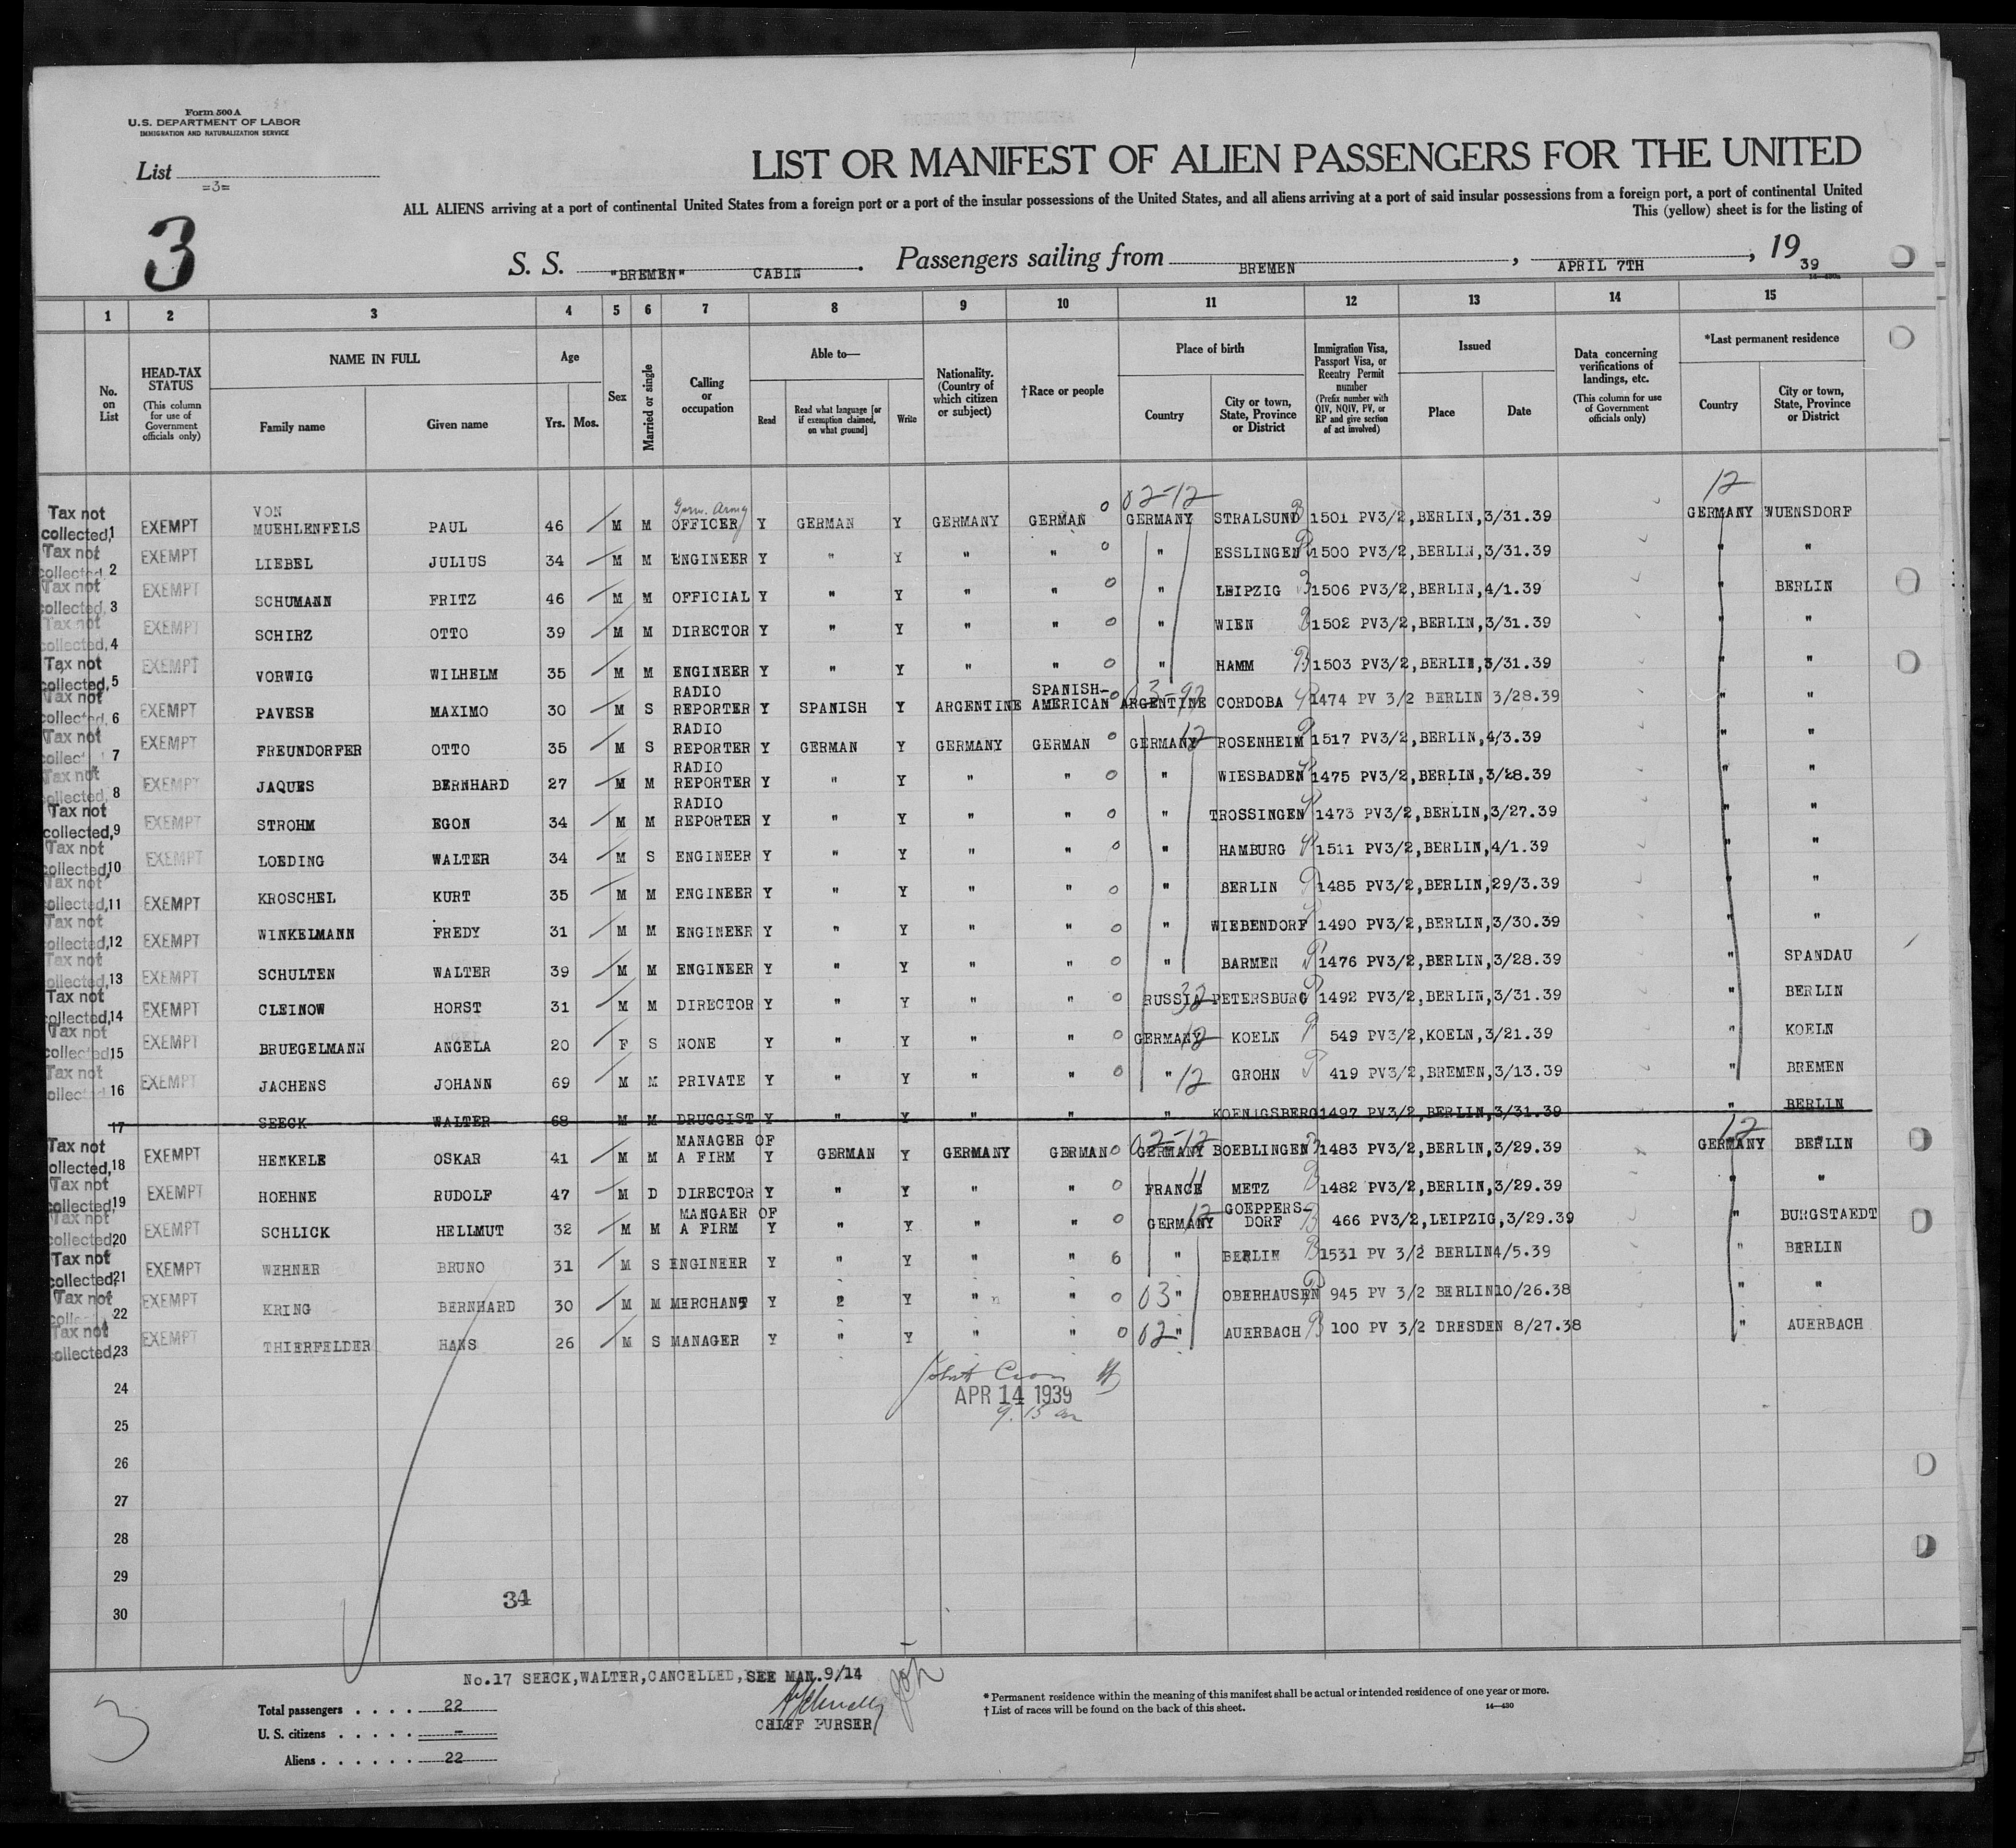 Form 500 A
U.S. DEPARTMENT OF LABOR
IMMIGRATION AND NATURALIZATION SERVICE
List
=3=
3
LIST OR MANIFEST OF ALIEN PASSENGERS FOR THE UNITED
ALL ALIENS arriving at a port of continental United States from a foreign port or a port of the insular possessions of the United States, and all aliens arriving at a port of said insular possessions from a foreign port, a port of continental United
This (yellow) sheet is for the listing of
S. S. "BREMEN" CABIN. Passengers sailing from BREMEN, APRIL 7TH, 19 39
1 2 3 4 5 6 7 8 9 10 11 12 13 14 15
No. on List
HEAD-TAX STATUS (This column for use of Government officials only)
NAME IN FULL
Family name Given name
Age
Yrs. Mos.
Sex
Married or single
Calling or occupation
Able to—
Read Read what language [or if exemption claimed, on what ground] Write
Nationality. (Country of which citizen or subject)
†Race or people
Place of birth
Country City or town, State, Province or District
Immigration Visa, Passport Visa, or Reentry Permit number (Prefix number with QIV, NQIV, PV, or RP and give section of act involved)
Issued
Place Date
Data concerning verifications of landings, etc. (This column for use of Government officials only)
*Last permanent residence
Country City or town, State, Province or District
02-12 12
Germ. Army
Tax not collected, 1 EXEMPT VON MUEHLENFELS PAUL 46 M M OFFICER Y GERMAN Y GERMANY GERMAN 0 GERMANY STRALSUND 1501 PV3/2, BERLIN, 3/31.39 GERMANY WUENSDORF
Tax not collected, 2 EXEMPT LIEBEL JULIUS 34 M M ENGINEER Y " Y " " 0 " ESSLINGEN 1500 PV3/2, BERLIN, 3/31.39 " "
Tax not collected, 3 EXEMPT SCHUMANN FRITZ 46 M M OFFICIAL Y " Y " " 0 " LEIPZIG 1506 PV3/2, BERLIN, 4/1.39 " BERLIN
Tax not collected, 4 EXEMPT SCHIRZ OTTO 39 M M DIRECTOR Y " Y " " 0 " WIEN 1502 PV3/2, BERLIN, 3/31.39 " "
Tax not collected, 5 EXEMPT VORWIG WILHELM 35 M M ENGINEER Y " Y " " 0 " HAMM 1503 PV3/2, BERLIN, 3/31.39 " "
Tax not collected, 6 EXEMPT PAVESE MAXIMO 30 M S RADIO REPORTER Y SPANISH Y ARGENTINE SPANISH-AMERICAN 0 ARGENTINE CORDOBA 1474 PV 3/2 BERLIN 3/28.39 " "
Tax not collect 7 EXEMPT FREUNDORFER OTTO 35 M S RADIO REPORTER Y GERMAN Y GERMANY GERMAN 0 GERMANY 12 ROSENHEIM 1517 PV3/2, BERLIN, 4/3.39 " "
Tax not collected, 8 EXEMPT JAQUES BERNHARD 27 M M RADIO REPORTER Y " Y " " 0 " WIESBADEN 1475 PV3/2, BERLIN, 3/28.39 " "
Tax not collected, 9 EXEMPT STROHM EGON 34 M M RADIO REPORTER Y " Y " " 0 " TROSSINGEN 1473 PV3/2, BERLIN, 3/27.39 " "
Tax not collected, 10 EXEMPT LOEDING WALTER 34 M S ENGINEER Y " Y " " 0 " HAMBURG 1511 PV3/2, BERLIN, 4/1.39 " "
Tax not collected, 11 EXEMPT KROSCHEL KURT 35 M M ENGINEER Y " Y " " 0 " BERLIN 1485 PV3/2, BERLIN, 29/3.39 " "
Tax not collected, 12 EXEMPT WINKELMANN FREDY 31 M M ENGINEER Y " Y " " 0 " WIEBENDORF 1490 PV3/2, BERLIN, 3/30.39 " "
Tax not collected, 13 EXEMPT SCHULTEN WALTER 39 M M ENGINEER Y " Y " " 0 " BARMEN 1476 PV3/2, BERLIN, 3/28.39 " SPANDAU
Tax not collected, 14 EXEMPT CLEINOW HORST 31 M M DIRECTOR Y " Y " " 0 RUSSIA 32 PETERSBURG 1492 PV3/2, BERLIN, 3/31.39 " BERLIN
Tax not collected 15 EXEMPT BRUEGELMANN ANGELA 20 F S NONE Y " Y " " 0 GERMANY 12 KOELN 549 PV3/2, KOELN, 3/21.39 " KOELN
Tax not collected 16 EXEMPT JACHENS JOHANN 69 M M PRIVATE Y " Y " " 0 " 12 GROHN 419 PV3/2, BREMEN, 3/13.39 " BREMEN
17 SEECK WALTER 68 M M DRUGGIST Y " Y " " " KOENIGSBERG 1497 PV3/2, BERLIN, 3/31.39 " BERLIN
02-12 12
Tax not collected, 18 EXEMPT HENKELE OSKAR 41 M M MANAGER OF A FIRM Y GERMAN Y GERMANY GERMAN 0 GERMANY BOEBLINGEN 1483 PV3/2, BERLIN, 3/29.39 GERMANY BERLIN
Tax not collected, 19 EXEMPT HOEHNE RUDOLF 47 M D DIRECTOR Y " Y " " 0 FRANCE 11 METZ 1482 PV3/2, BERLIN, 3/29.39 " "
Tax not collected, 20 EXEMPT SCHLICK HELLMUT 32 M M MANGAER OF A FIRM Y " Y " " 0 GERMANY 12 GOEPPERS-DORF 466 PV3/2, LEIPZIG, 3/29.39 " BURGSTAEDT
Tax not collected, 21 EXEMPT WEHNER BRUNO 31 M S ENGINEER Y " Y " " 6 " BERLIN 1531 PV 3/2 BERLIN 4/5.39 " BERLIN
Tax not 22 EXEMPT KRING BERNHARD 30 M M MERCHANT Y 2 Y " " 0 03 " OBERHAUSEN 945 PV 3/2 BERLIN 10/26.38 " "
Tax not collected, 23 EXEMPT THIERFELDER HANS 26 M S MANAGER Y " Y " " 0 02 " AUERBACH 100 PV 3/2 DRESDEN 8/27.38 " AUERBACH
24
APR 14 1939
25
9.15 am
26
27
28
29
34
30
No.17 SEECK, WALTER, CANCELLED, SEE MAN. 9/14
Total passengers . . . . 22
U. S. citizens . . . . . -
Aliens . . . . . . 22
CHIEF PURSER
3
* Permanent residence within the meaning of this manifest shall be actual or intended residence of one year or more.
† List of races will be found on the back of this sheet.
14—430